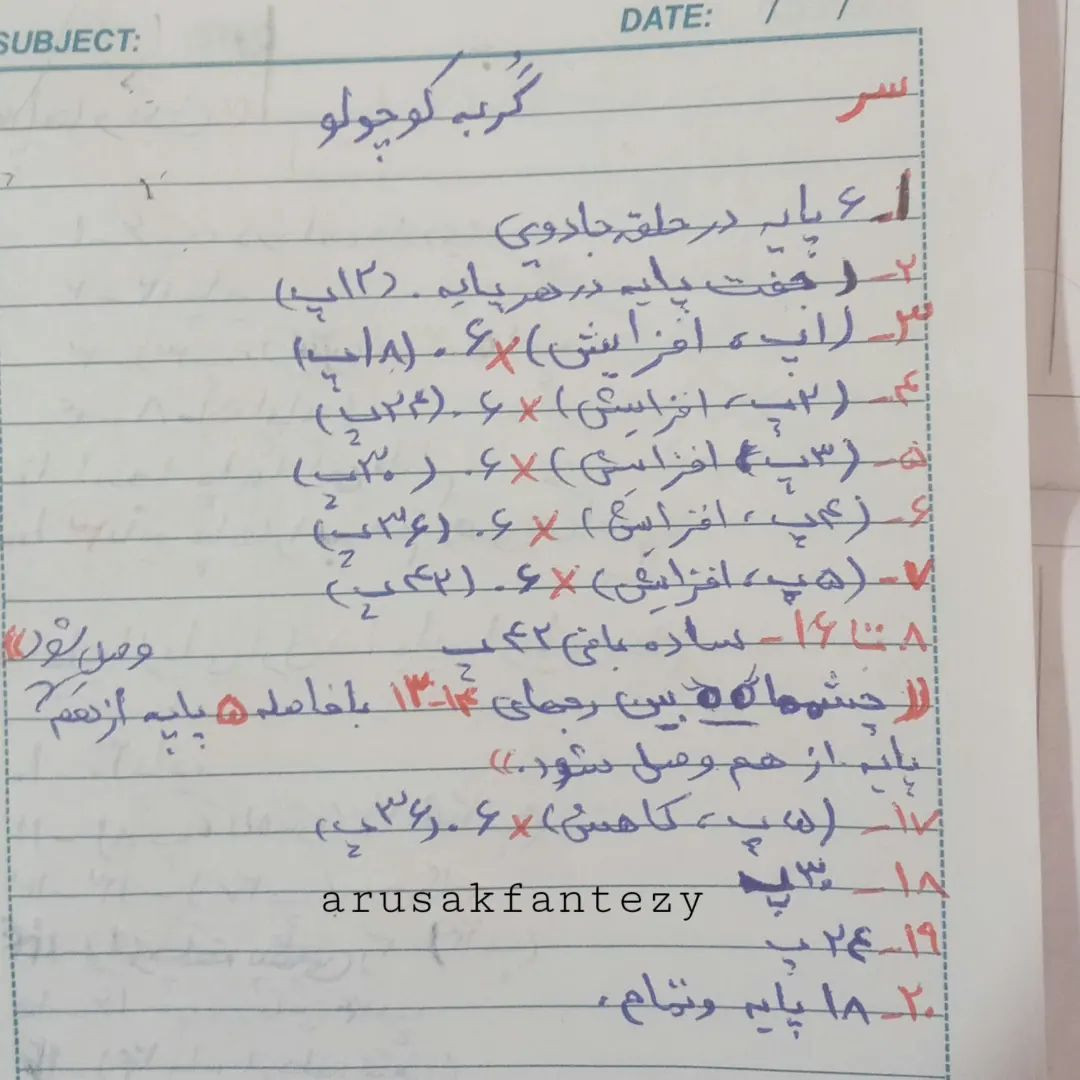 SUBJECT:
DATE: / /
گُربه کوچولو
سر
۱_ ۶ پایه در حلقه جادویی
۲_ جفت پایه در هر پایه . (۱۲پ)
۳_ (۱پ، افزایش)×۶ . (۱۸پ)
۴_ (۲پ، افزایش)×۶ . (۲۴پ)
۵_ (۳پ، افزایش)×۶ . (۳۰پ)
۶_ (۴پ، افزایش)×۶ . (۳۶پ)
۷_ (۵پ، افزایش)×۶ . (۴۲پ)
۸ تا ۱۶_ ساده بافی ۴۲پ
((چشمها بین رجهای ۱۴-۱۳ با فاصله ۵ پایه از هم وصل شود))
پایه از هم وصل شود.))
۱۷_ (۵پ، کاهش)×۶ . (۳۶پ)
۱۸_ ۳۰پ
arusakfantezy
۱۹_ ۲۴پ
۲۰_ ۱۸ پایه و تمام.